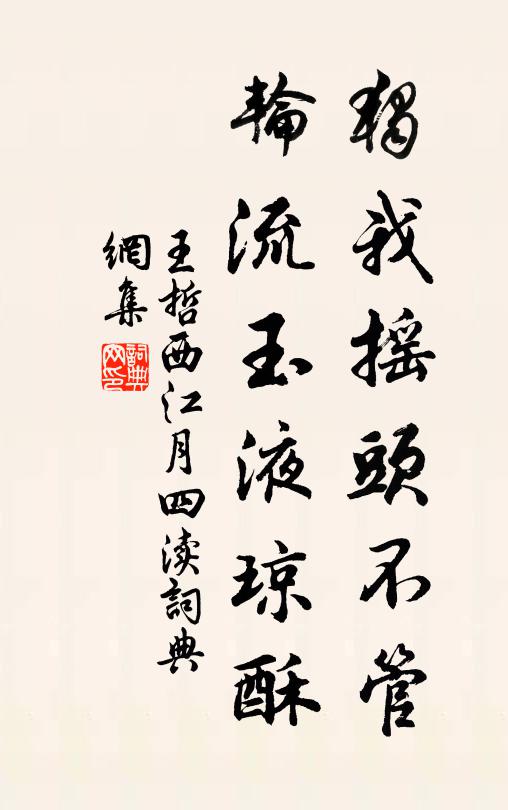 獨我摇頭不管
輪流玉液琼酥
王哲西江月四渎詞典
網集
詞典
网印